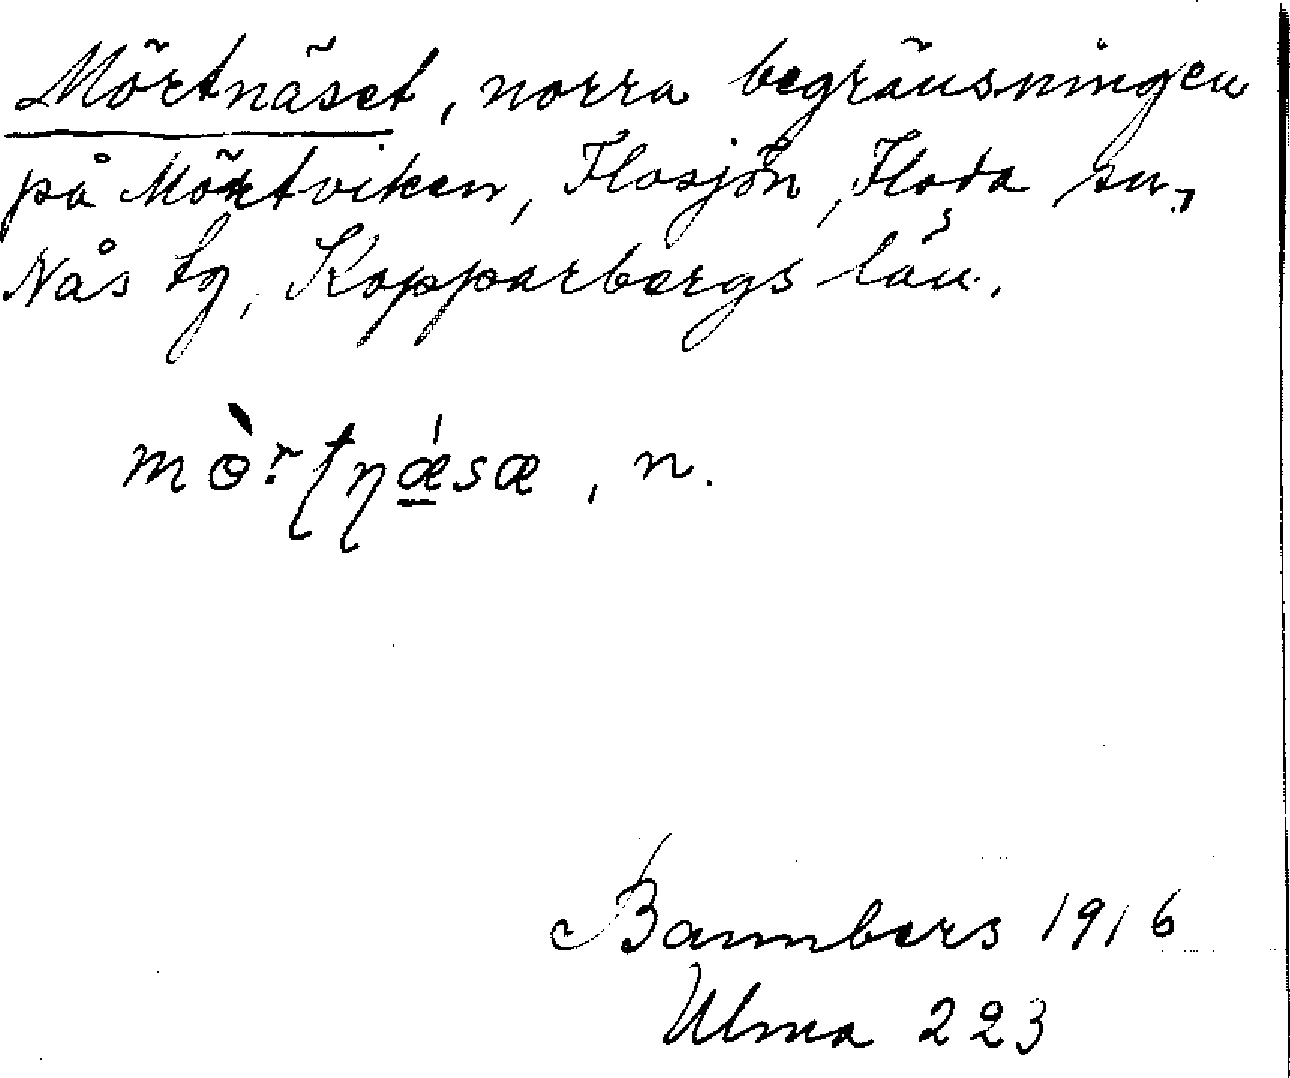 Mörtnäset, norra begränsningen
på Mörtviken, Flosjön, Floda sn,
Nås tg, Kopparbergs län.
mɵ̀rtnǽsæ, n.
Bannbers 1916
Ulma 223